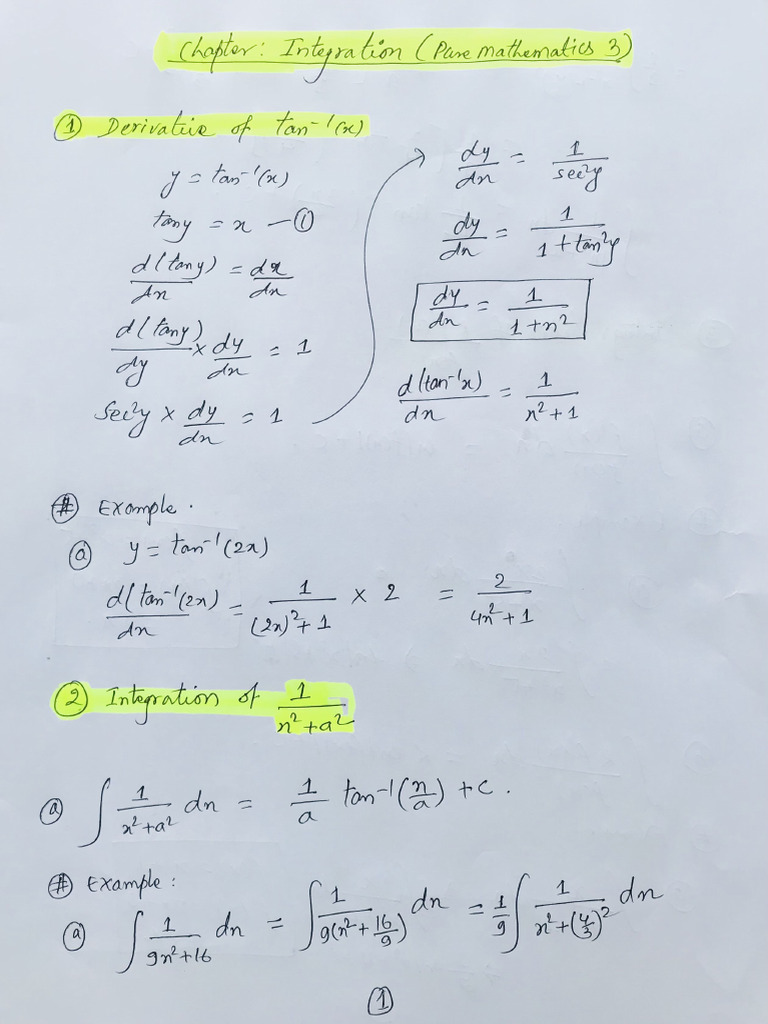 Chapter: Integration (Pure mathematics 3)
① Derivative of tan⁻¹(x)
y = tan⁻¹(x)
tany = x — ①
d(tany)/dx = dx/dx
d(tany)/dy × dy/dx = 1
sec²y × dy/dx = 1
dy/dx = 1/sec²y
dy/dx = 1/(1 + tan²y)
dy/dx = 1/(1 + x²)
d(tan⁻¹x)/dx = 1/(x² + 1)
# Example.
ⓐ y = tan⁻¹(2x)
d(tan⁻¹(2x)/dx = 1/((2x)² + 1) × 2 = 2/(4x² + 1)
② Integration of 1/(x² + a²)
ⓐ ∫ 1/(x² + a²) dx = 1/a tan⁻¹(x/a) + c.
# Example:
ⓐ ∫ 1/(9x² + 16) dx = ∫ 1/(9(x² + 16/9)) dx = 1/9 ∫ 1/(x² + (4/3)²) dx
①